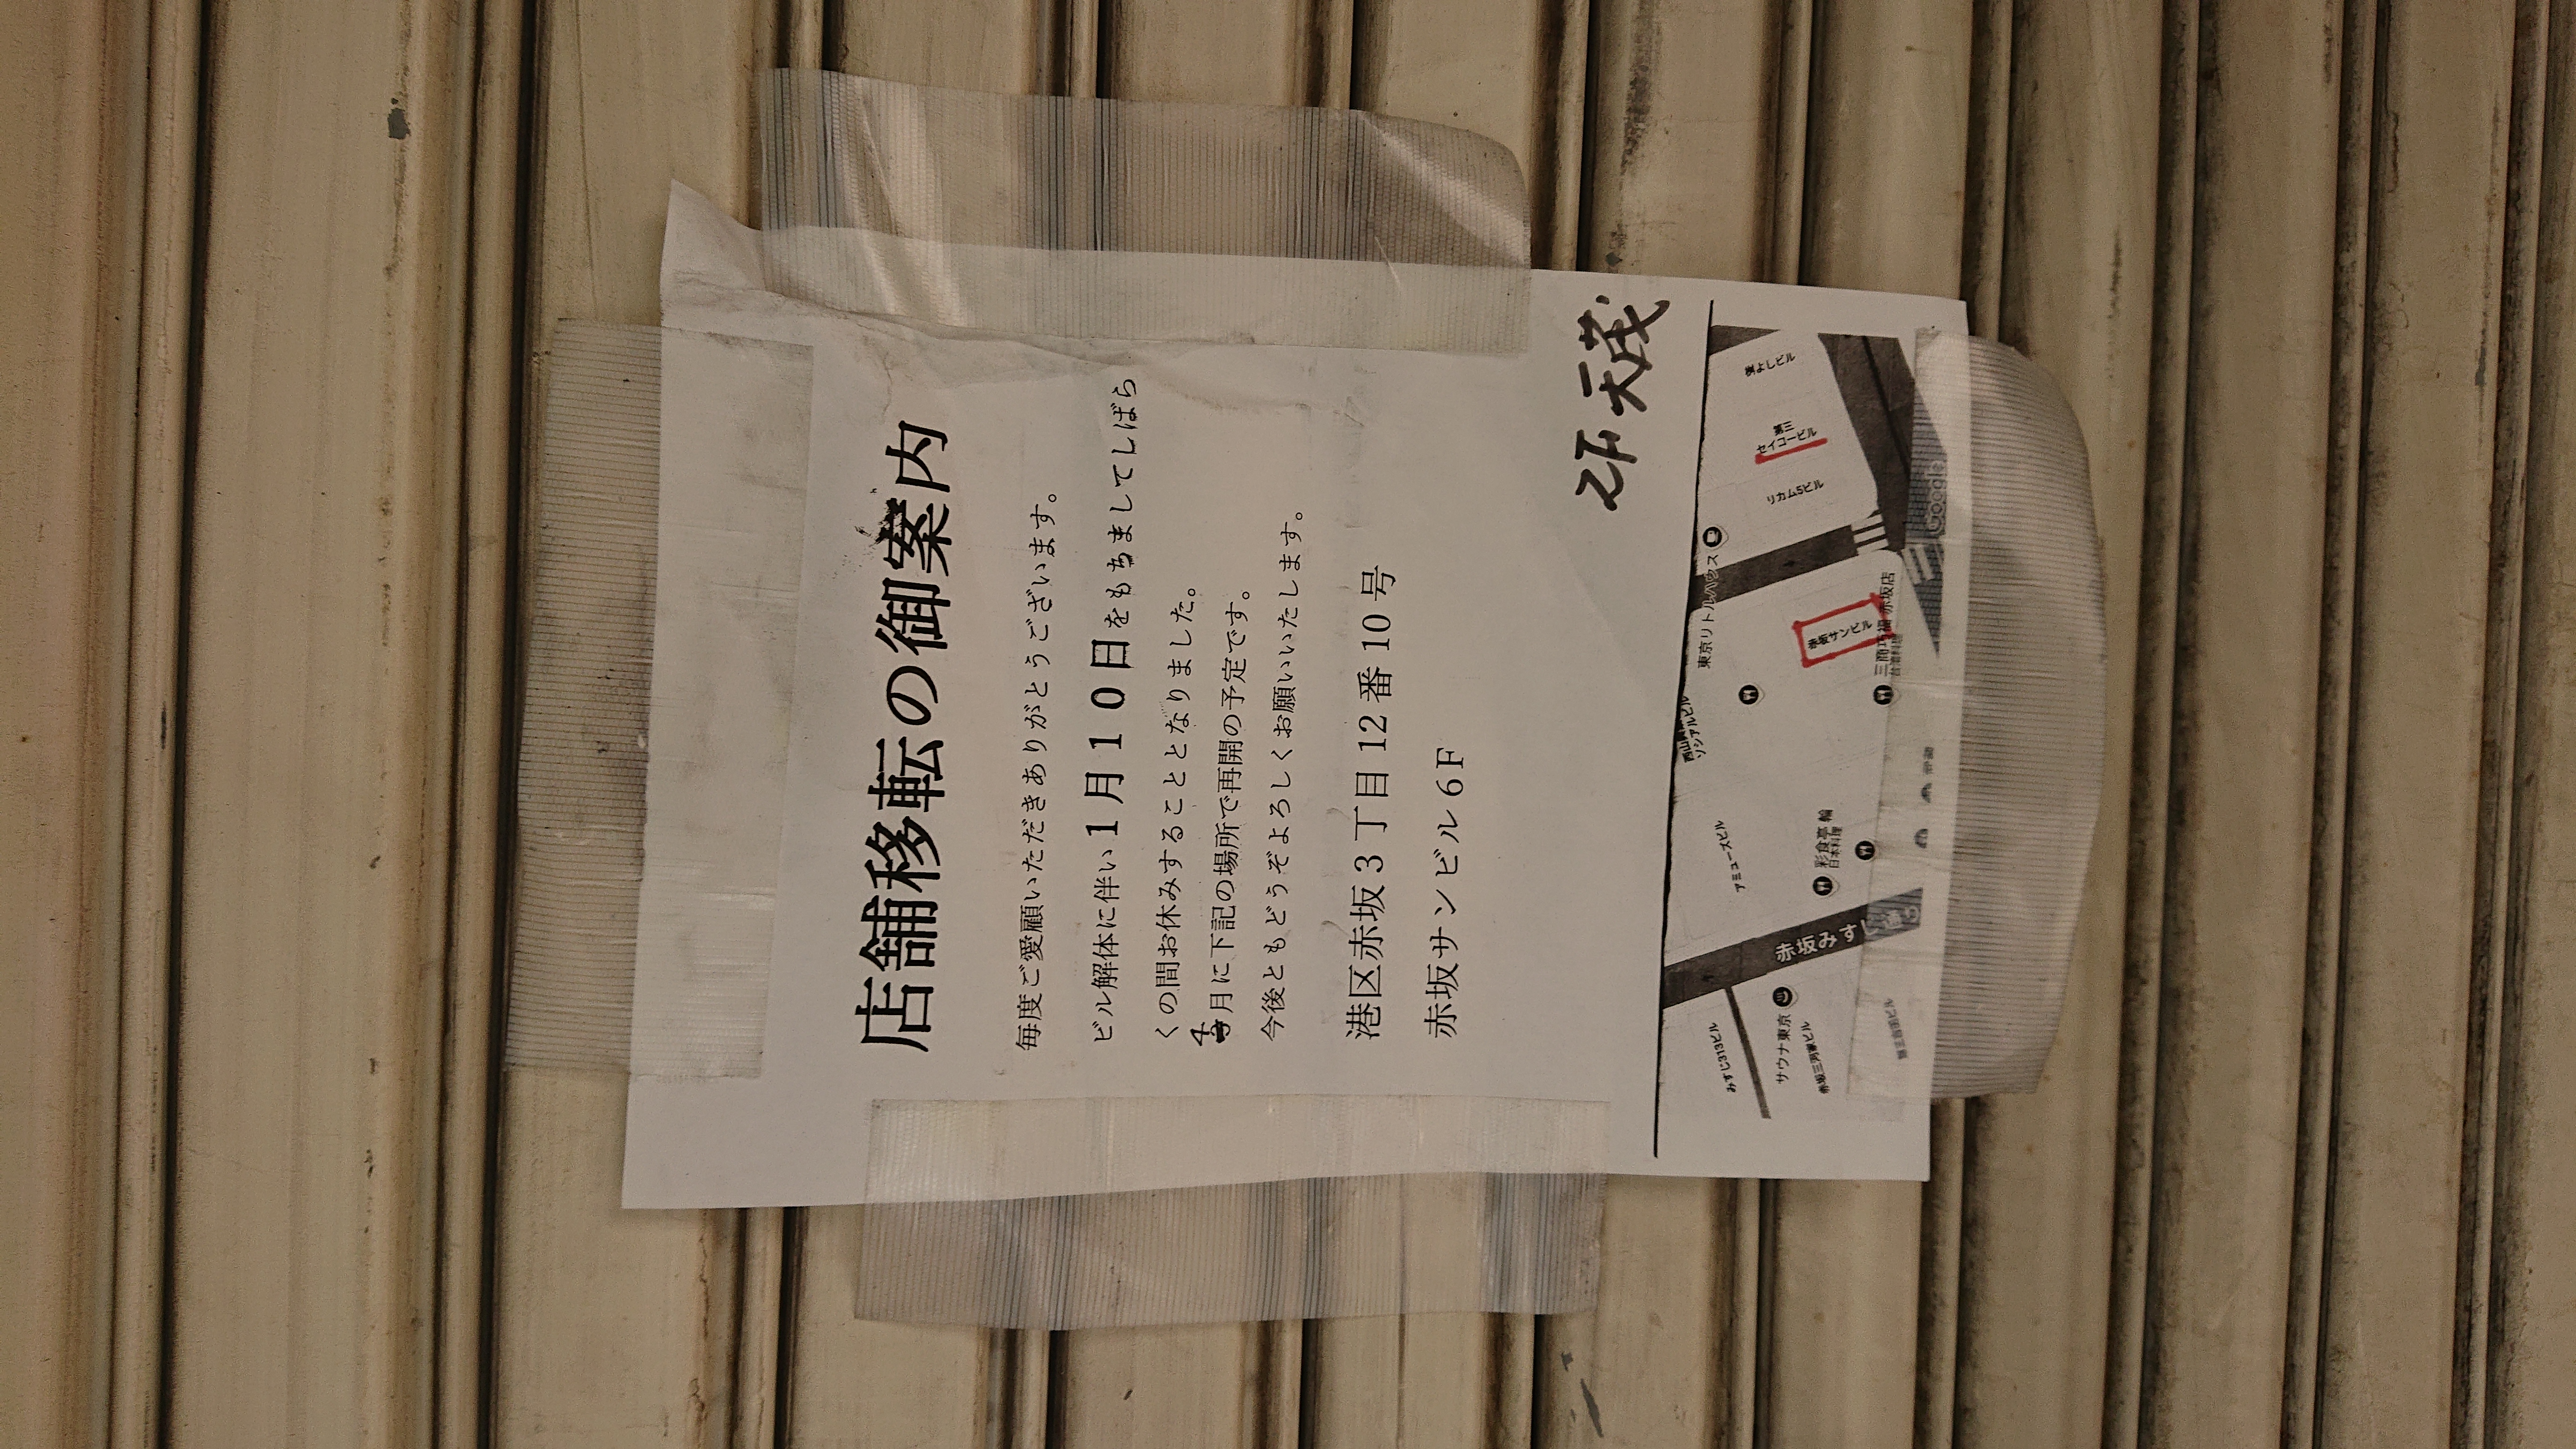 店舗移転の御案内
毎度ご愛顧いただきありがとうございます。
ビル解体に伴い1月10日をもちましてしばら
くの間お休みすることとなりました。
4月に下記の場所で再開の予定です。
今後ともどうぞよろしくお願いいたします。
港区赤坂3丁目12番10号
赤坂サンビル6F
2F 天茂
東京リトルハウス
第三
セイコービル
リカム5ビル
赤坂サンビル
三商巧福 赤坂店
台湾料理
アミューズビル
彩食亭 輪
日本料理
赤坂みすじ通り
みすじ313ビル
サウナ東京
赤坂三河家ビル
Google